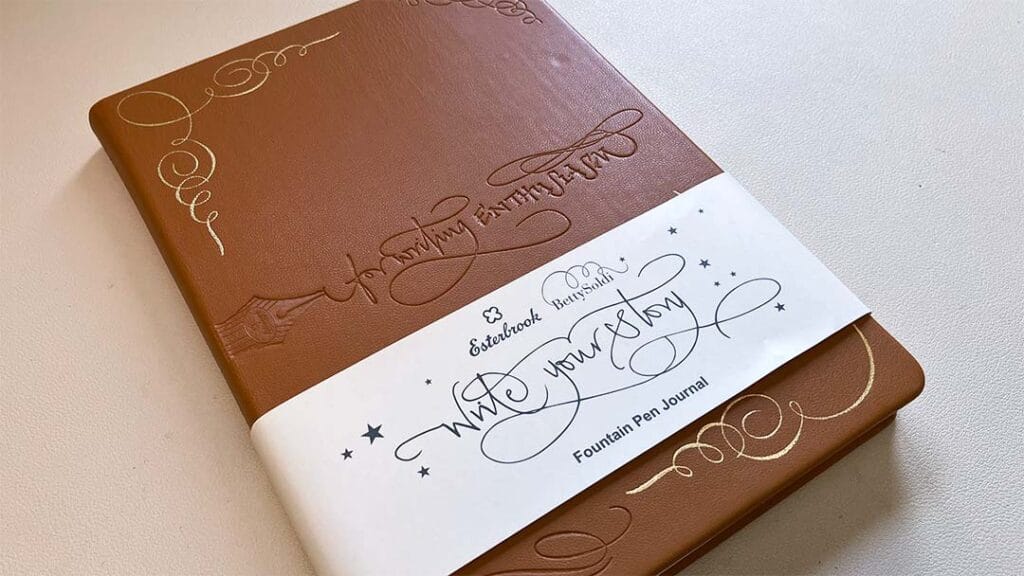 for writing ENTHUSIASM
Esterbrook
BettySoldi
Write your story
Fountain Pen Journal